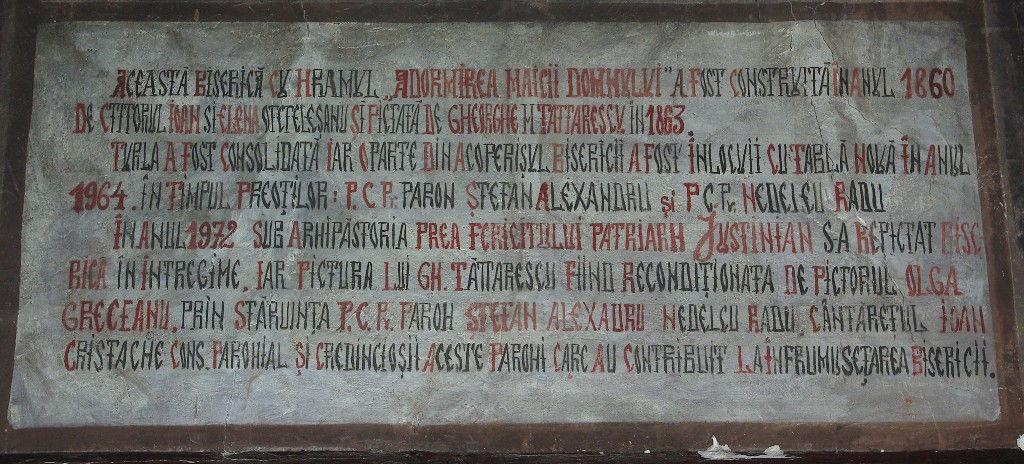 Această Biserică cu Hramul „Adormirea Maicii Domnului" a fost construită în anul 1860
de ctitorul Ioan si Elena Stetelesanu și pictată de Gheorghe M Tattarescu în 1863
Turla a fost consolidată iar o parte din acoperișul Bisericii a fost înlocuit cu tablă nouă în anul
1964. În timpul Preoților: P.C.Pr. Paroh Ștefan Alexandru și P.C.Pr. Nedelcu Radu
În anul 1972 sub arhipăstoria Prea Fericitului Patriarh Justinian s-a repictat Bise-
rica în întregime, iar pictura lui Gh. Tăttarescu fiind recondiționată de pictorul Olga
Greceanu. Prin stăruința P.C.Pr. Paroh Ștefan Alexadru Nedelcu Radu, cântarețul Ioan
Cristache Cons. Parohial și credincioșii aceste parohi care au contribuit la înfrumusețarea Bisericii.